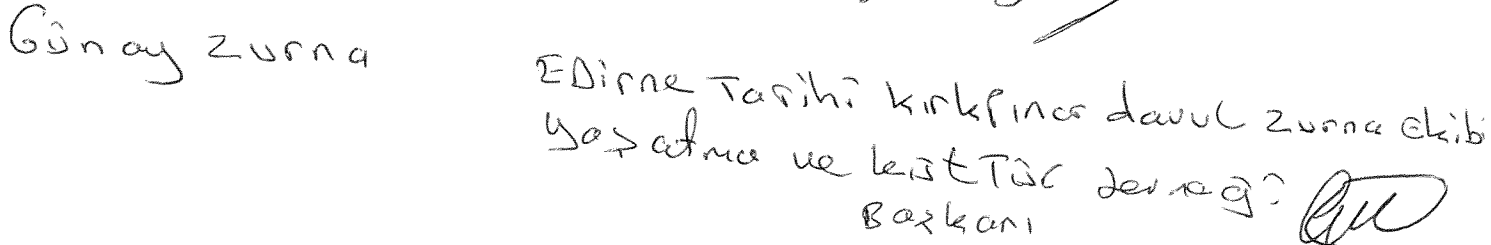 Günay zurna
EDirne Tarihî kırkpınar davul zurna ekibi
yaşatma ve kültTür derneği
Başkanı